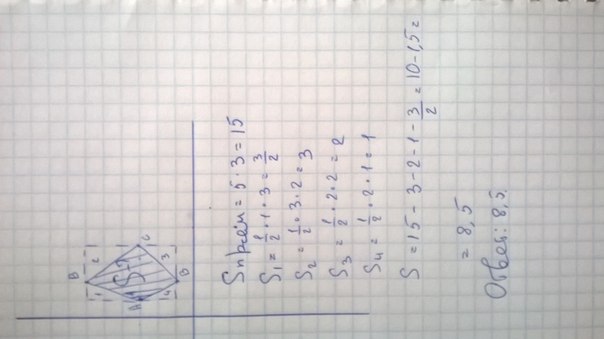 B
1 2
A S C
4 3
D
Sпрям = 5 · 3 = 15
S₁ = 1/2 · 1 · 3 = 3/2
S₂ = 1/2 · 3 · 2 = 3
S₃ = 1/2 · 2 · 2 = 2
S₄ = 1/2 · 2 · 1 = 1
S = 15 - 3 - 2 - 1 - 3/2 = 10 - 1,5 =
= 8,5
Ответ: 8,5.